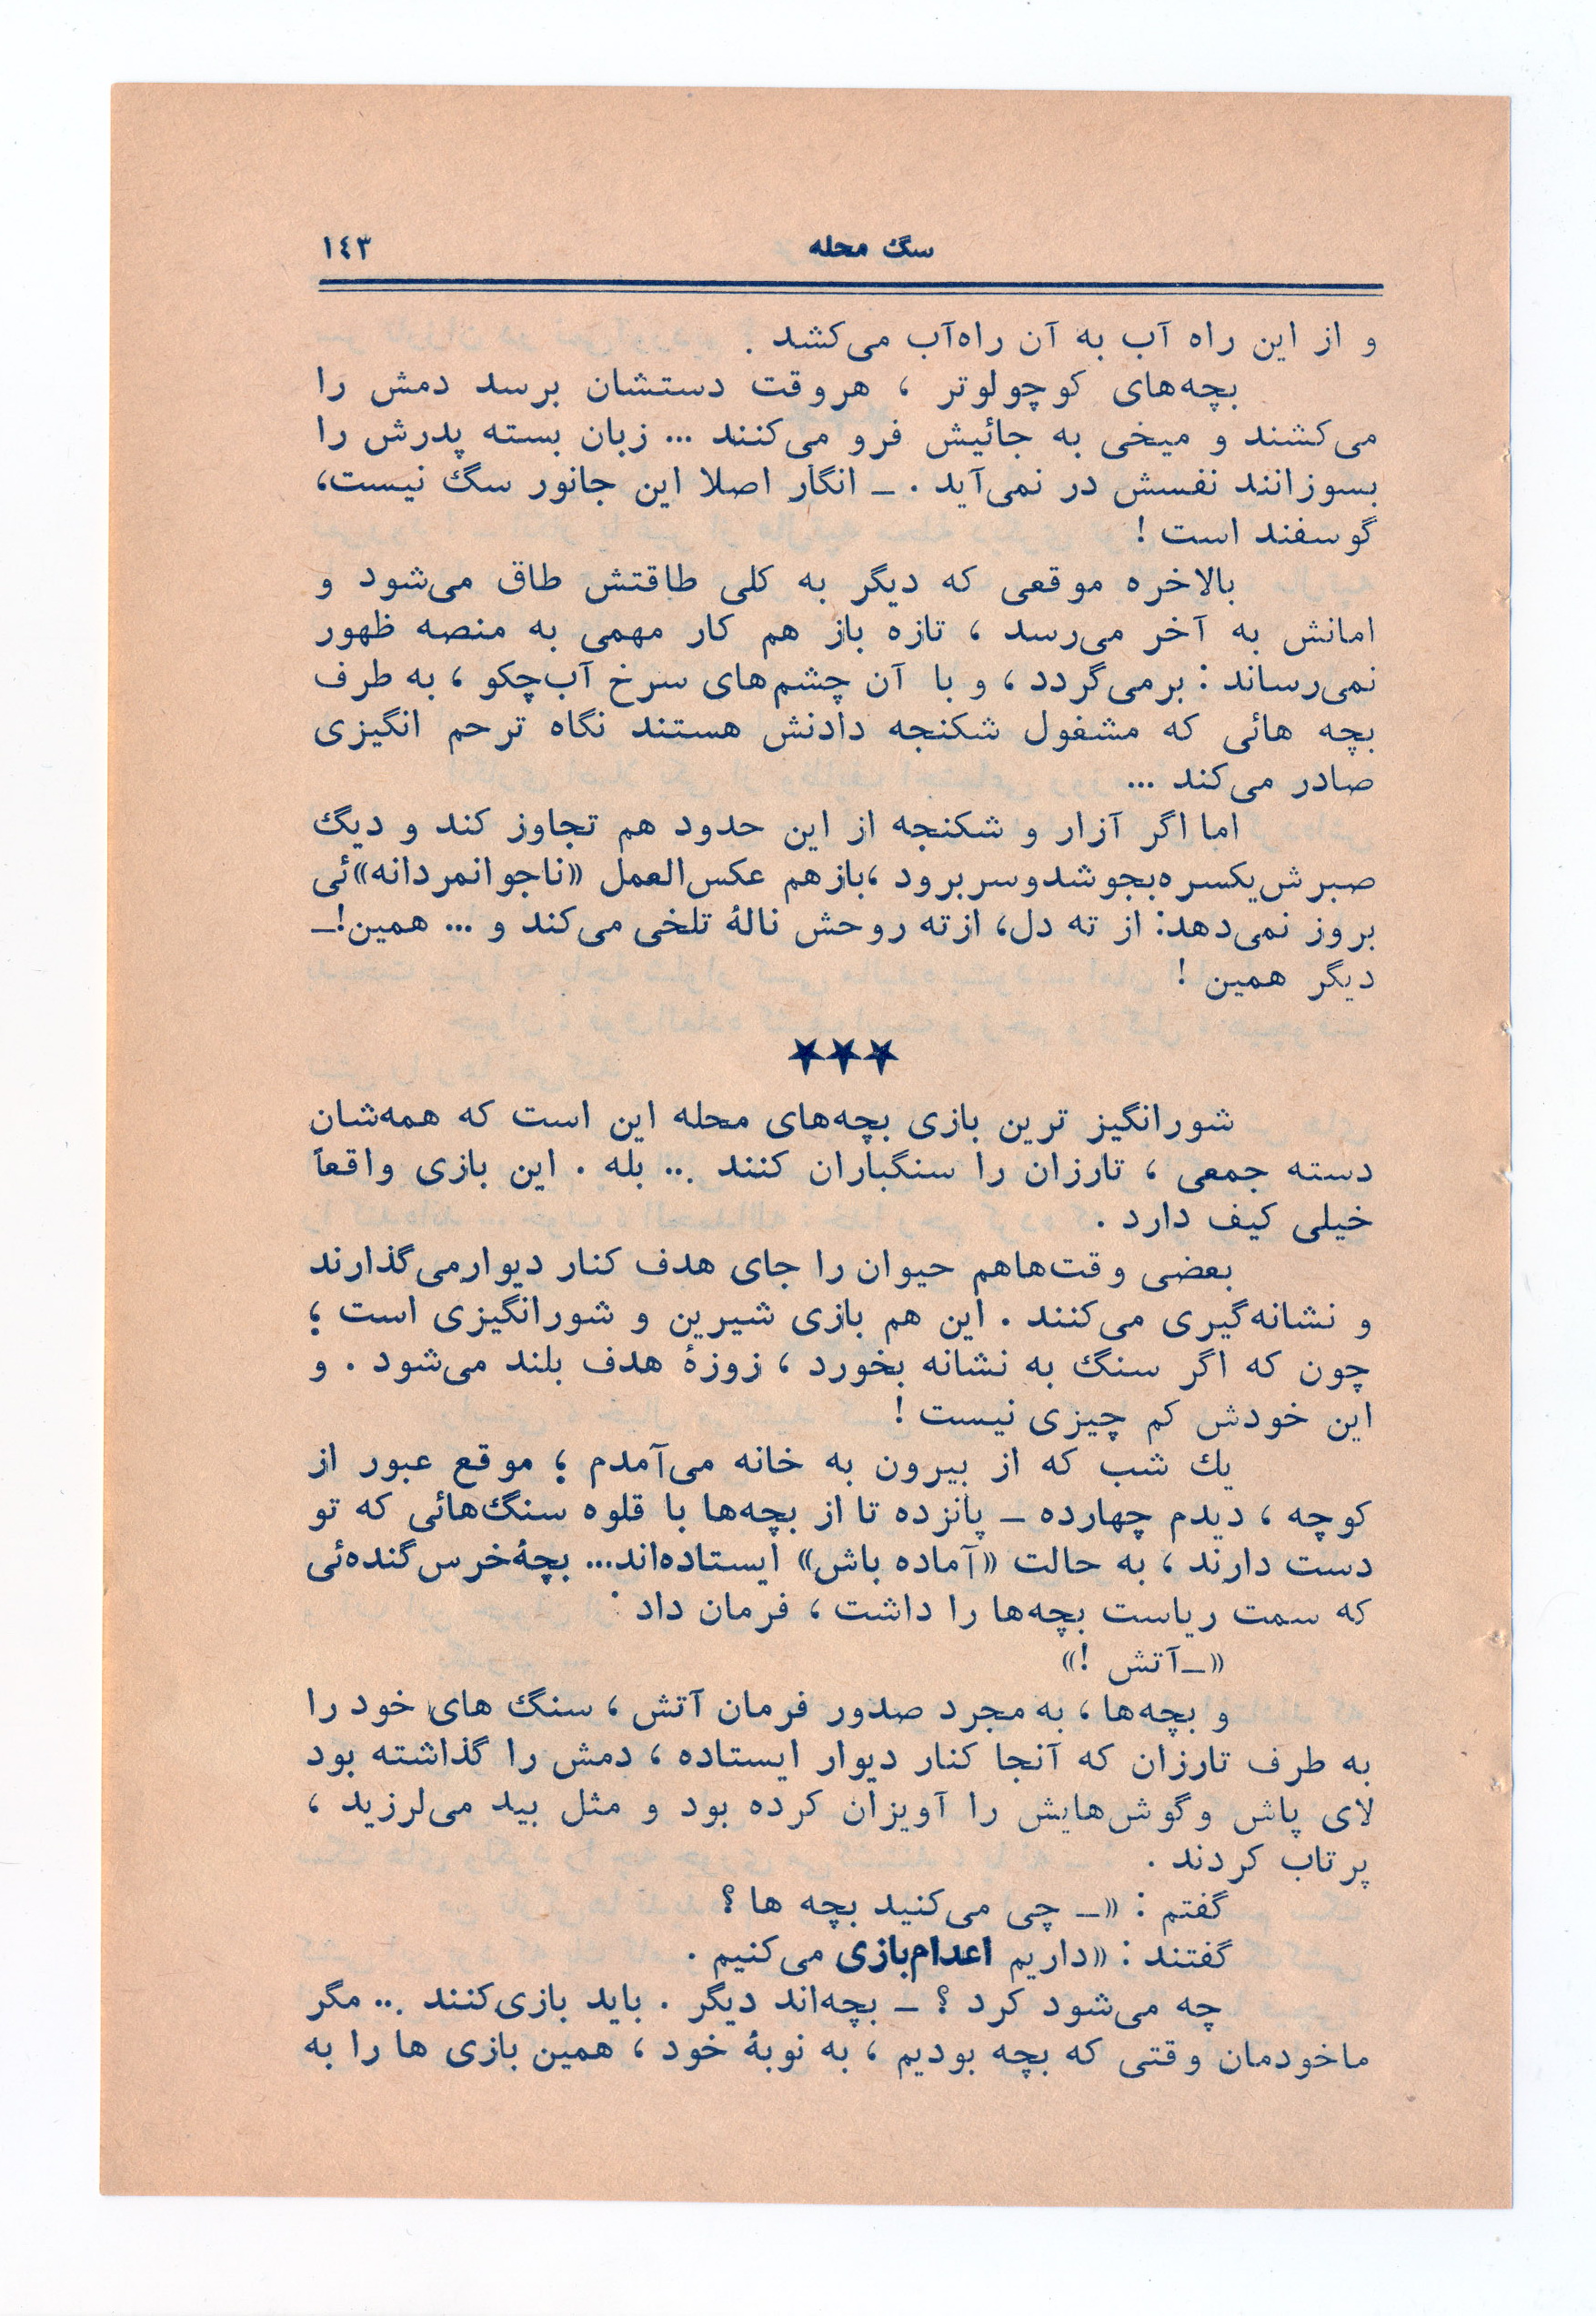 سگ محله
١٤٣
و از این راه آب به آن راه‌آب می‌کشد .
بچه‌های کوچولوتر ، هروقت دستشان برسد دمش را
می‌کشند و میخی به جائیش فرو می‌کنند ... زبان بسته پدرش را
بسوزانند نفسش در نمی‌آید . ـ انگار اصلا این جانور سگ نیست،
گوسفند است !
بالاخره موقعی که دیگر به کلی طاقتش طاق می‌شود و
امانش به آخر می‌رسد ، تازه باز هم کار مهمی به منصه ظهور
نمی‌رساند : برمی‌گردد ، و با آن چشم‌های سرخ آب‌چکو ، به طرف
بچه هائی که مشغول شکنجه دادنش هستند نگاه ترحم انگیزی
صادر می‌کند ...
اما اگر آزار و شکنجه از این حدود هم تجاوز کند و دیگ
صبرش‌یکسره‌بجوشدوسربرود ،بازهم عکس‌العمل «ناجوانمردانه»ئی
بروز نمی‌دهد: از ته دل، ازته روحش نالهٔ تلخی می‌کند و ... همین!ـ
دیگر همین !
★★★
شورانگیز ترین بازی بچه‌های محله این است که همه‌شان
دسته جمعی ، تارزان را سنگباران کنند ... بله . این بازی واقعاً
خیلی کیف دارد .
بعضی وقت‌هاهم حیوان را جای هدف کنار دیوارمی‌گذارند
و نشانه‌گیری می‌کنند . این هم بازی شیرین و شورانگیزی است ؛
چون که اگر سنگ به نشانه بخورد ، زوزهٔ هدف بلند می‌شود . و
این خودش کم چیزی نیست !
یك شب که از بیرون به خانه می‌آمدم ؛ موقع عبور از
کوچه ، دیدم چهارده ـ پانزده تا از بچه‌ها با قلوه سنگ‌هائی که تو
دست دارند ، به حالت «آماده باش» ایستاده‌اند... بچهٔ‌خرس‌گنده‌ئی
که سمت ریاست بچه‌ها را داشت ، فرمان داد :
«ـ‌آتش !»
و بچه‌ها ، به مجرد صدور فرمان آتش ، سنگ های خود را
به طرف تارزان که آنجا کنار دیوار ایستاده ، دمش را گذاشته بود
لای پاش وگوش‌هایش را آویزان کرده بود و مثل بید می‌لرزید ،
پرتاب کردند .
گفتم : «ـ چی می‌کنید بچه ها ؟
گفتند : «داریم اعدام‌بازی می‌کنیم .
چه می‌شود کرد ؟ ـ بچه‌اند دیگر . باید بازی‌کنند ... مگر
ماخودمان وقتی که بچه بودیم ، به نوبهٔ خود ، همین بازی ها را به